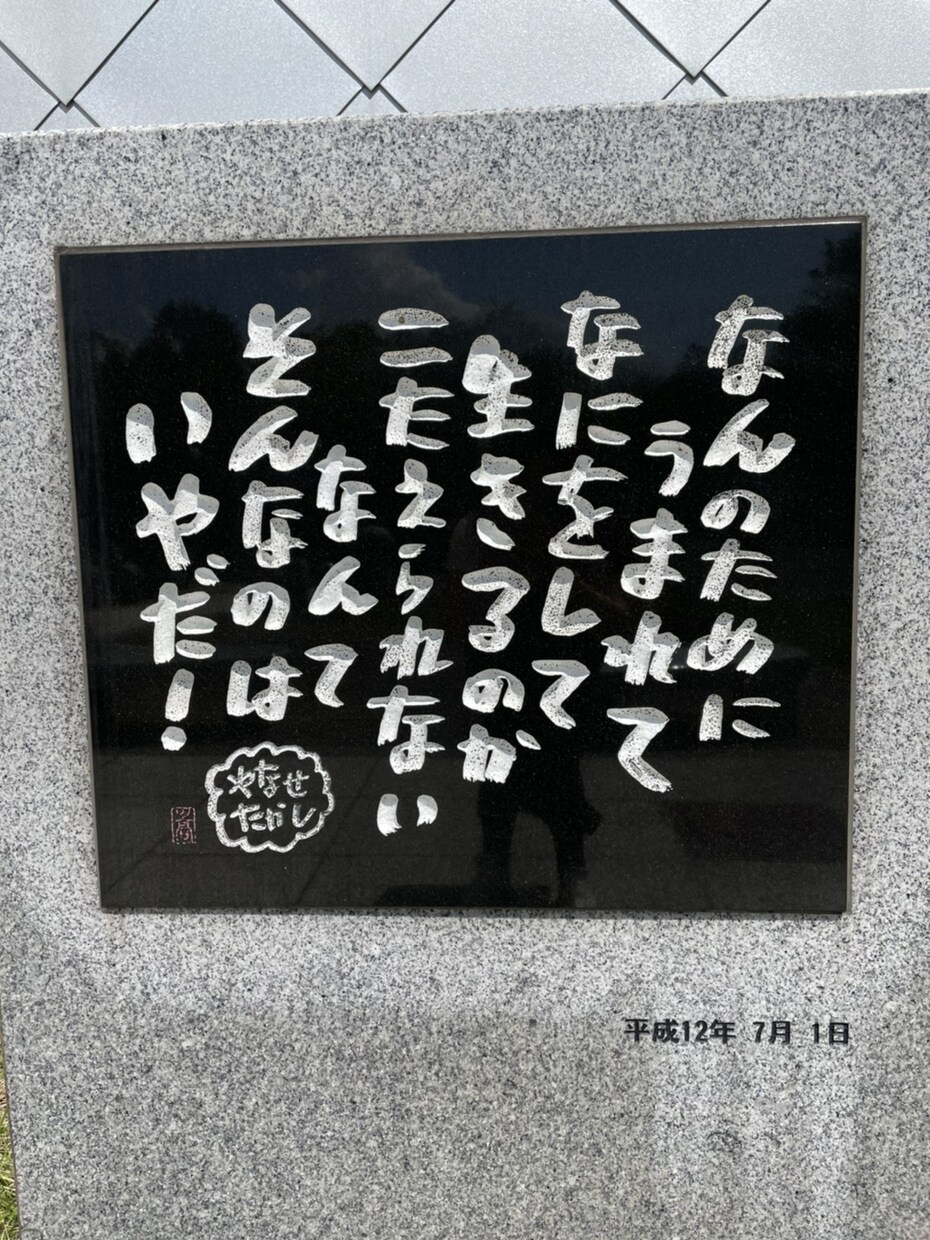 なんのために
うまれて
なにをして
生きるのか
こたえられない
なんて
そんなのは
いやだ!
やなせ
たかし
平成12年 7月 1日